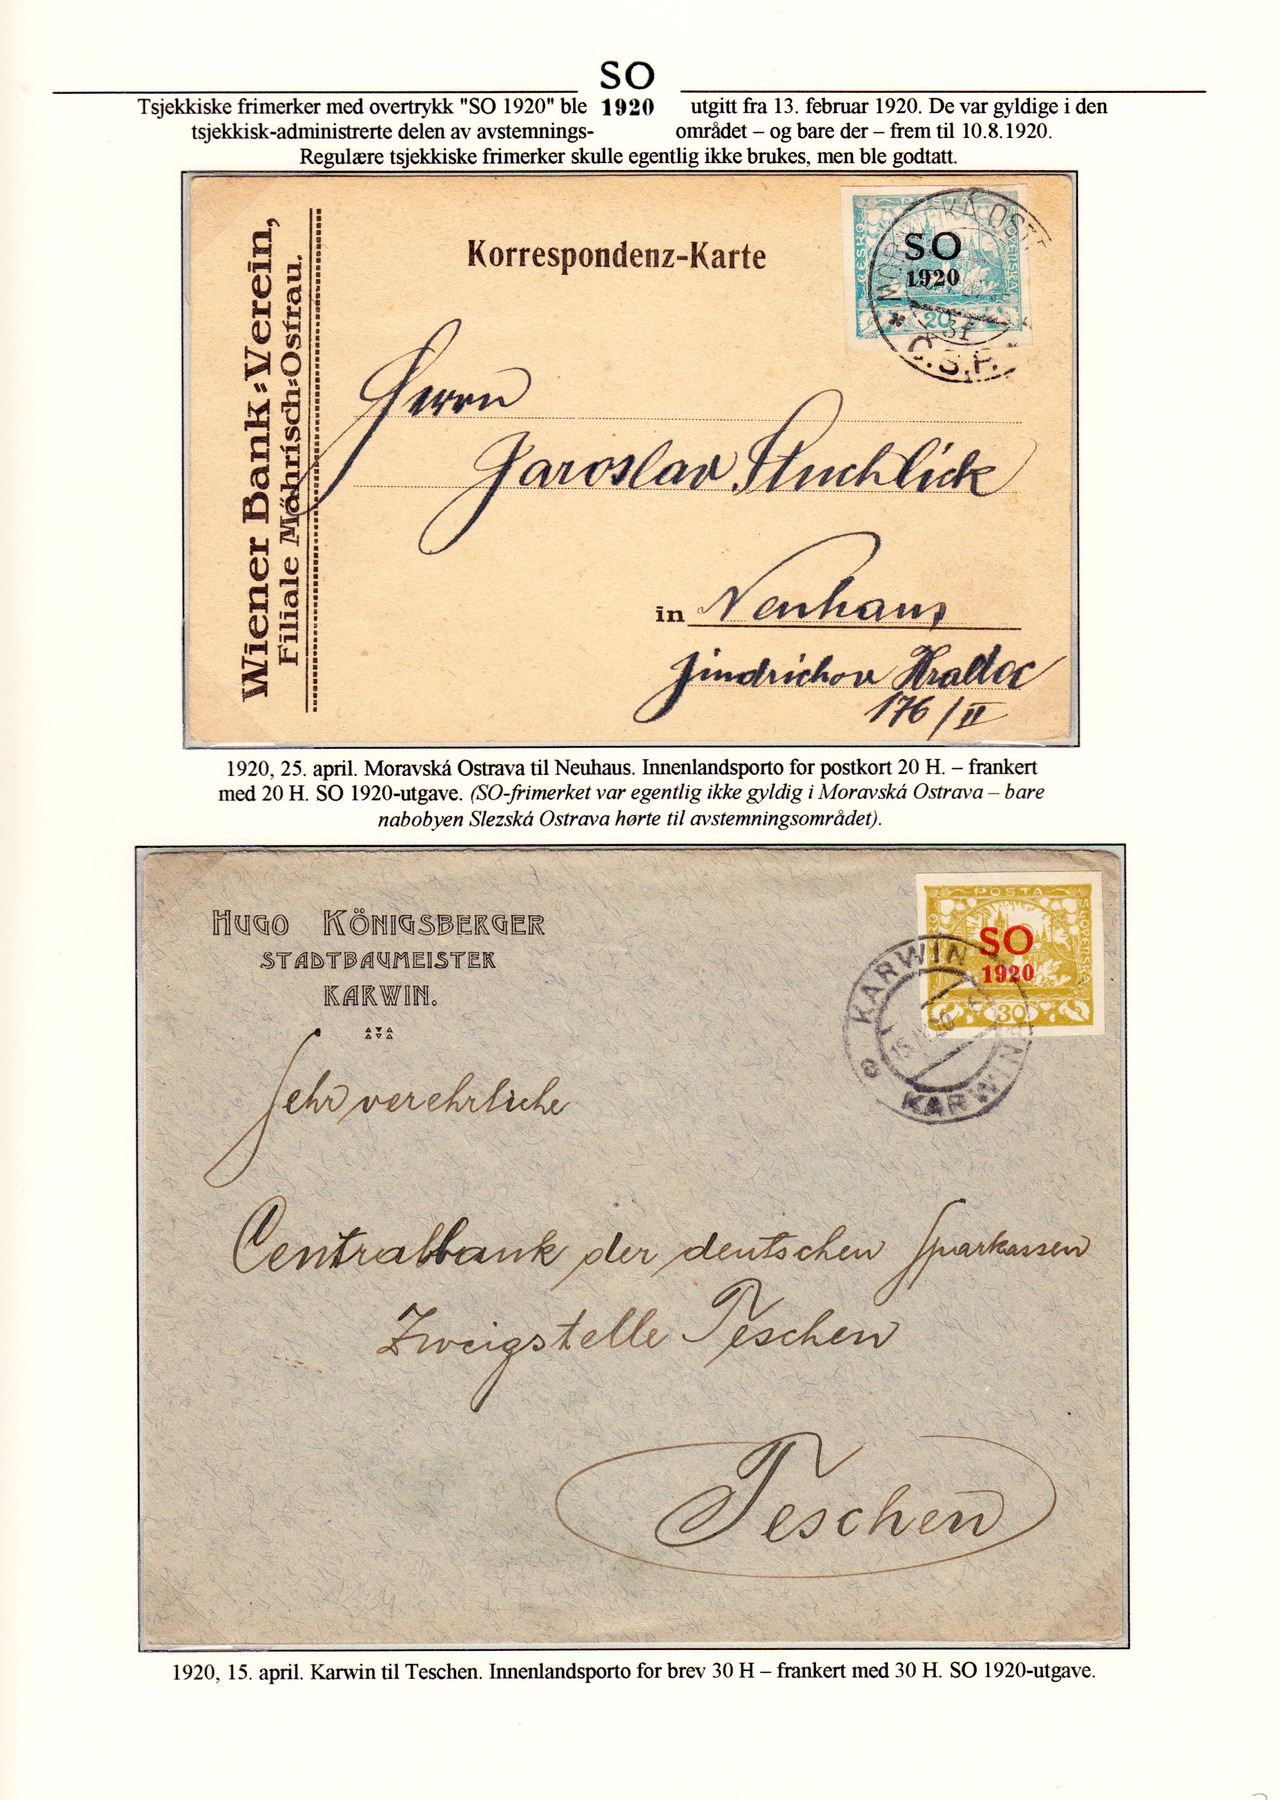 SO
1920
Tsjekkiske frimerker med overtrykk "SO 1920" ble utgitt fra 13. februar 1920. De var gyldige i den
tsjekkisk-administrerte delen av avstemnings- området – og bare der – frem til 10.8.1920.
Regulære tsjekkiske frimerker skulle egentlig ikke brukes, men ble godtatt.
Wiener Bank=Verein,
Filiale Mährisch=Ostrau.
Korrespondenz-Karte
ČESKO
SLOVENSKÁ
SO
1920
20
Č.S.P.
Herrn
Jaroslav Stuchlick
in Neuhaus
Jindrichov Hradec
176/II
1920, 25. april. Moravská Ostrava til Neuhaus. Innenlandsporto for postkort 20 H. – frankert
med 20 H. SO 1920-utgave. (SO-frimerket var egentlig ikke gyldig i Moravská Ostrava – bare
nabobyen Slezská Ostrava hørte til avstemningsområdet).
HUGO KÖNIGSBERGER
STADTBAUMEISTER
KARWIN.
POSTA
SLOVENSKÁ
SO
1920
30
KARWIN
KARWIN
Sehr verehrliche
Centralbank der deutschen Sparkassen
Zweigstelle Teschen
Teschen
1920, 15. april. Karwin til Teschen. Innenlandsporto for brev 30 H – frankert med 30 H. SO 1920-utgave.